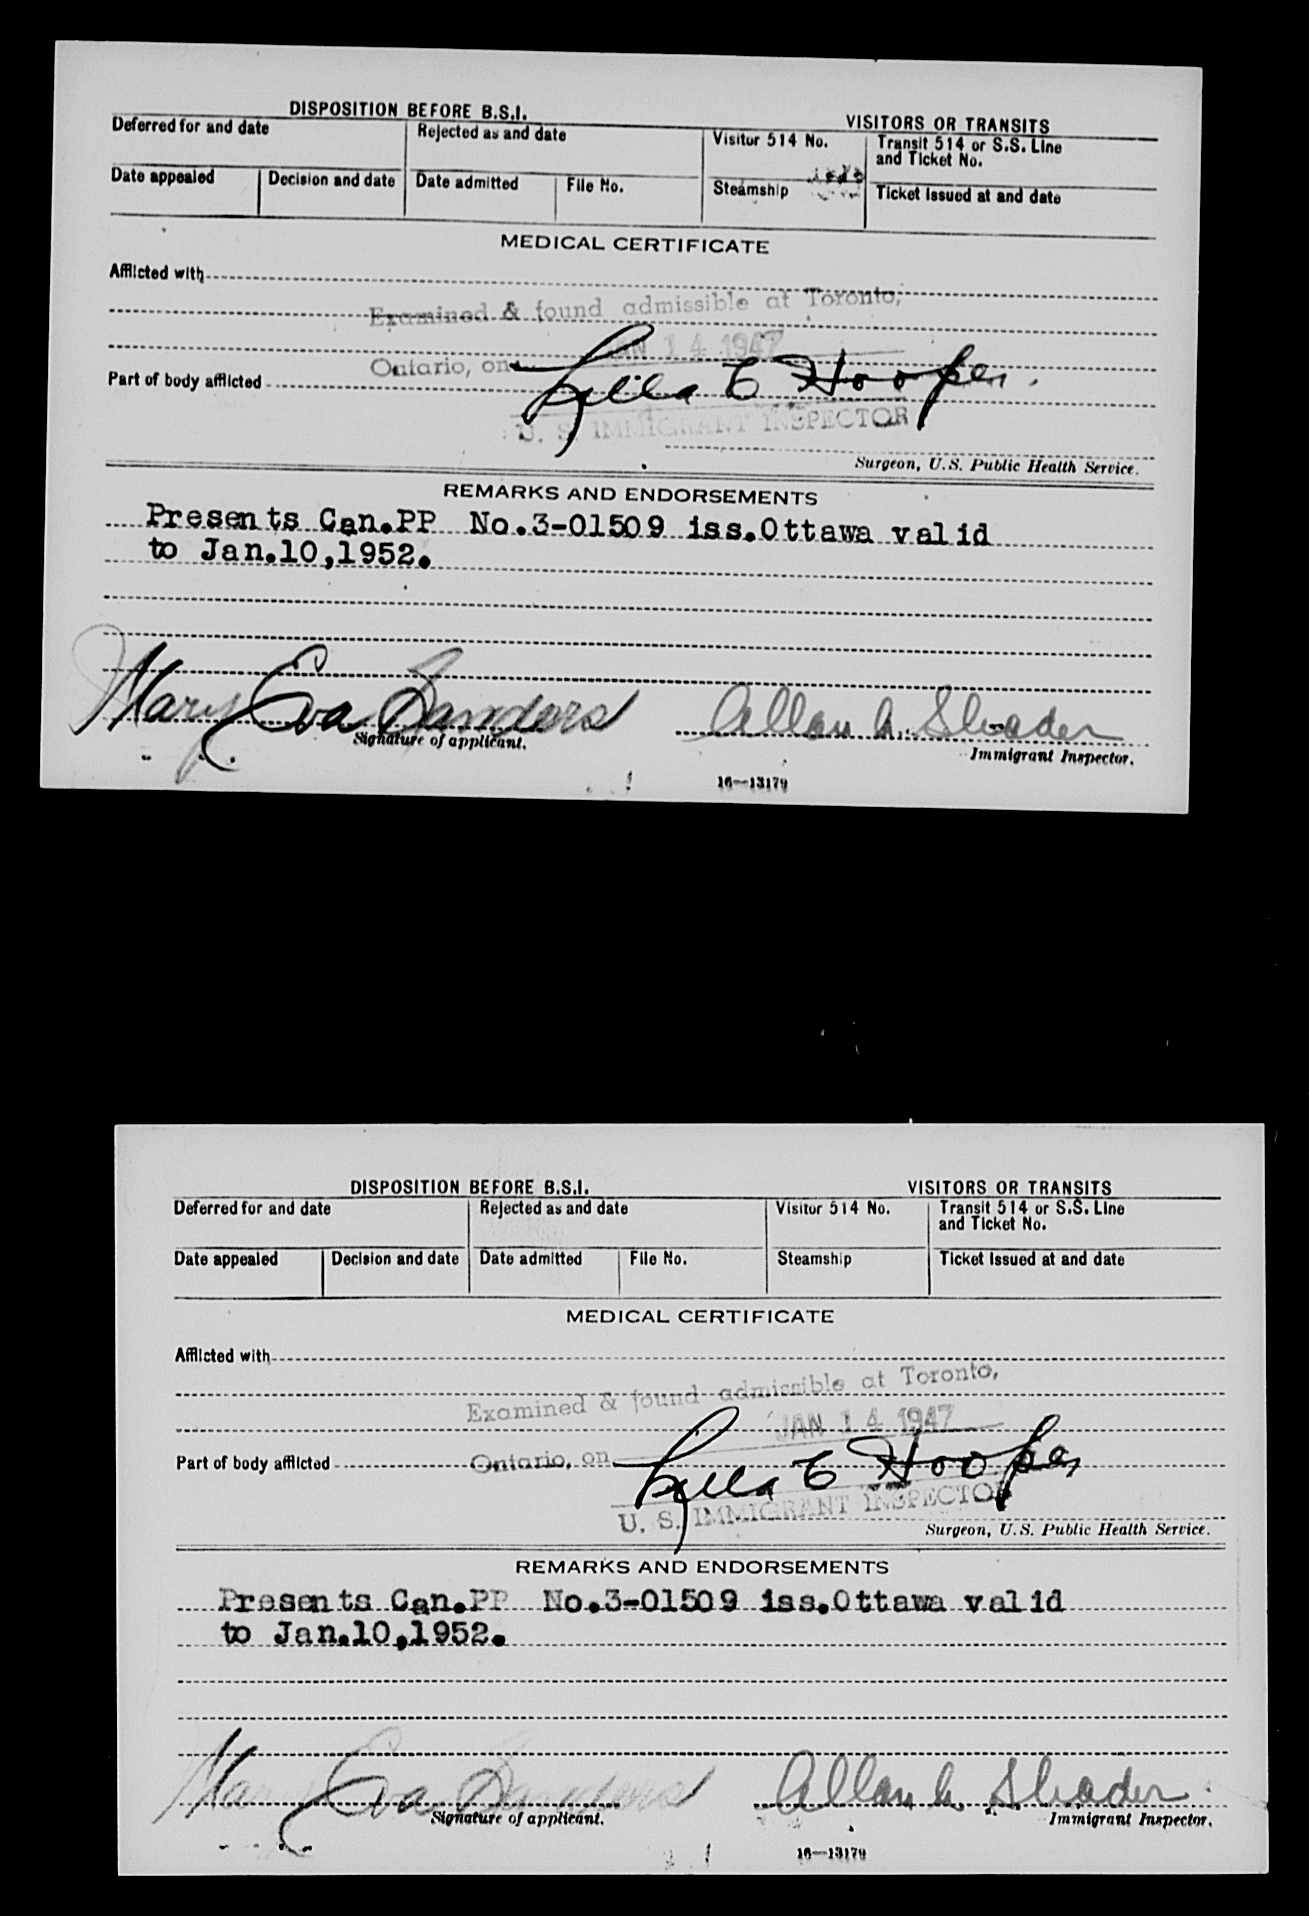 DISPOSITION BEFORE B.S.I.
VISITORS OR TRANSITS
Deferred for and date
Rejected as and date
Visitor 514 No.
Transit 514 or S.S. Line
and Ticket No.
Date appealed
Decision and date
Date admitted
File No.
Steamship
Ticket issued at and date
MEDICAL CERTIFICATE
Afflicted with
Examined & found admissible at Toronto,
JAN 14 1947
Ontario, on
Part of body afflicted
Lilla E Hooper
U. S. IMMIGRANT INSPECTOR
Surgeon, U.S. Public Health Service.
REMARKS AND ENDORSEMENTS
Presents Can.PP No.3-01509 iss.Ottawa valid
to Jan.10,1952.
Mary Eva Sanders
Allan A. Shader
Signature of applicant.
Immigrant Inspector.
16—13179
DISPOSITION BEFORE B.S.I.
VISITORS OR TRANSITS
Deferred for and date
Rejected as and date
Visitor 514 No.
Transit 514 or S.S. Line
and Ticket No.
Date appealed
Decision and date
Date admitted
File No.
Steamship
Ticket issued at and date
MEDICAL CERTIFICATE
Afflicted with
Examined & found admissible at Toronto,
JAN 14 1947
Ontario, on
Part of body afflicted
Lilla E Hooper
U. S. IMMIGRANT INSPECTOR
Surgeon, U.S. Public Health Service.
REMARKS AND ENDORSEMENTS
Presents Can.PP No.3-01509 iss.Ottawa valid
to Jan.10,1952.
Mary Eva Sanders
Allan A. Shader
Signature of applicant.
Immigrant Inspector.
16—13179